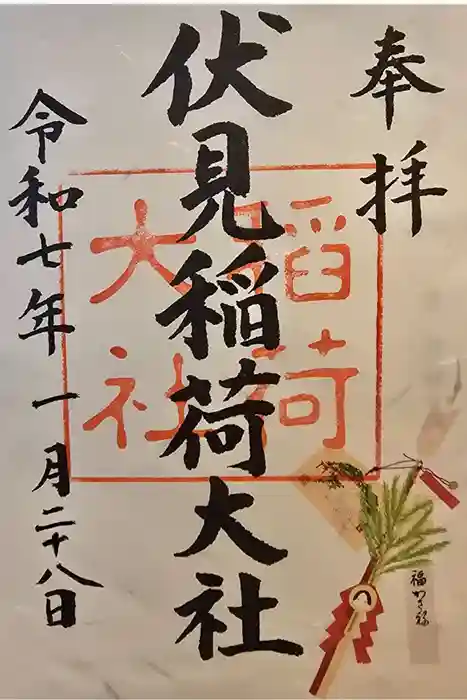 奉拝
伏見稲荷大社
稲荷
大社
令和七年 一月二十八日
福かさね